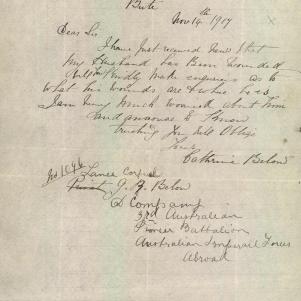 Bute
Nov 14th 1917
Dear Sir
I have Just received News that
My Husband has Been wounded
will you Kindly make enquiries as to
what his wounds are & where he is
I am very much worried about him
and anxious to Know
trusting you will Oblige
Yours
Catherine Below
No 1046 Lance Corporal
Private J. J. Below
D Company
3rd Australian
Pioneer Battalion
Australian Imperial Forces
Abroad